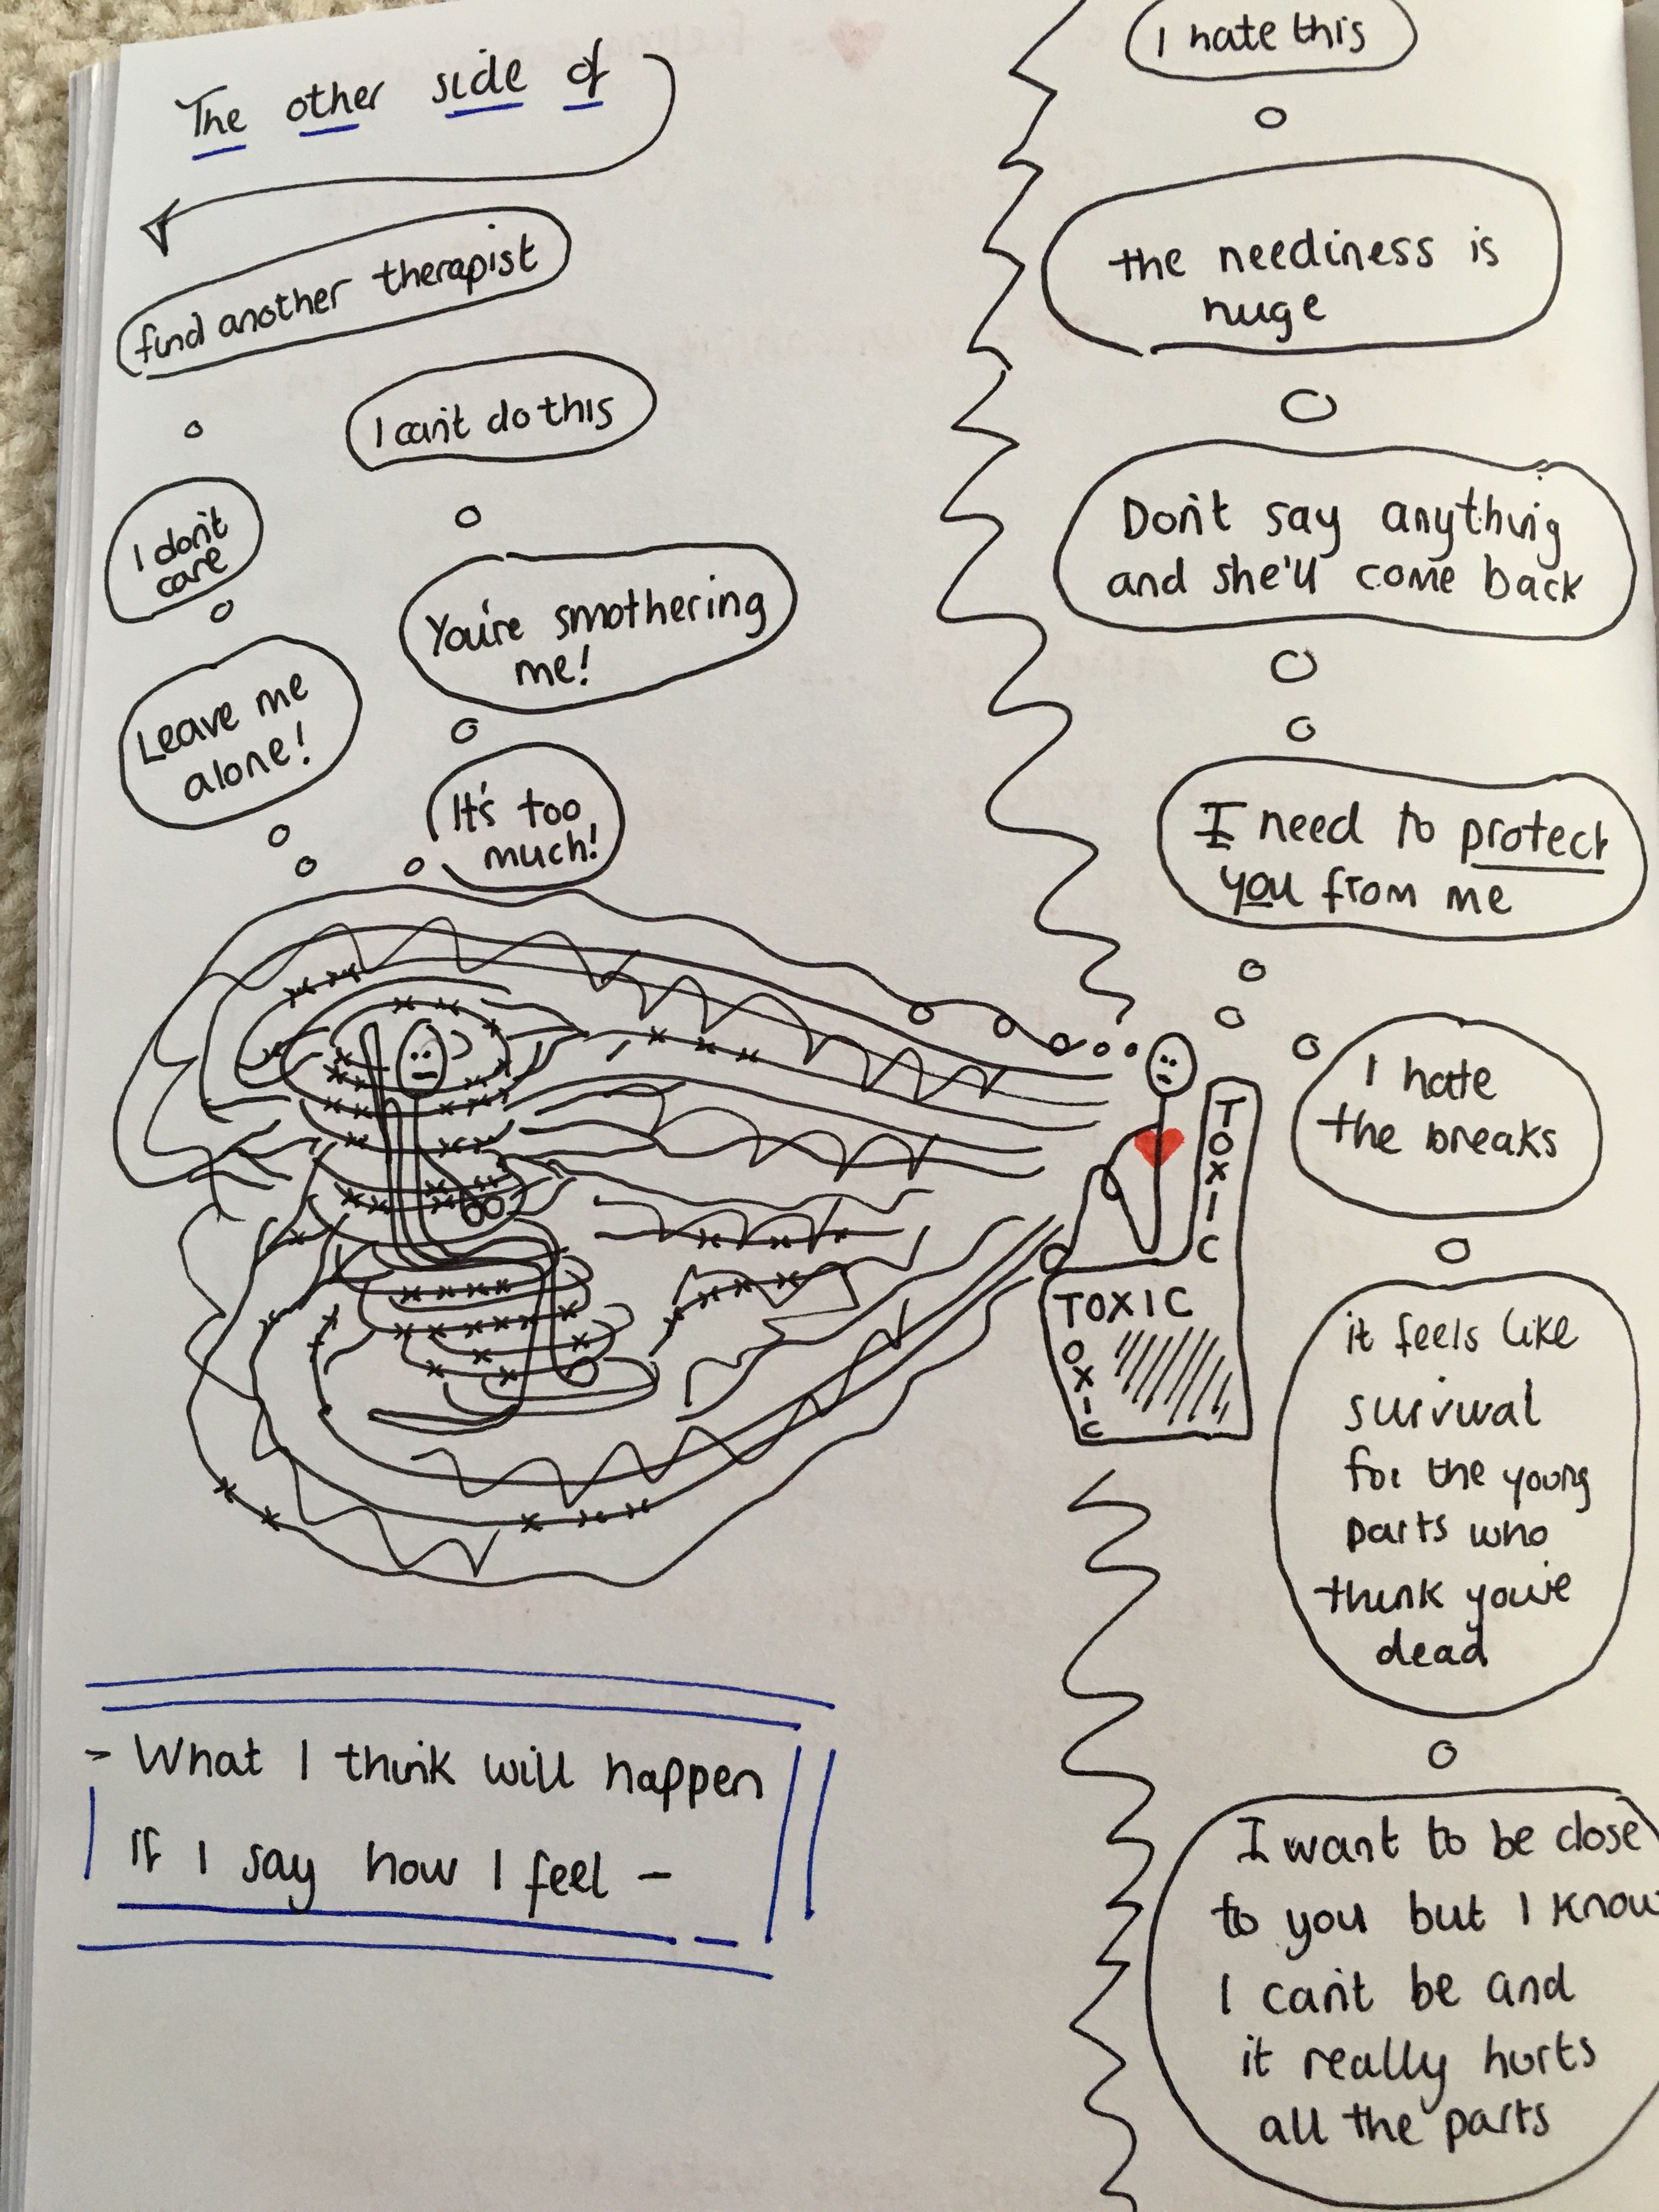 The other side of
find another therapist
I can't do this
I don't
care
You're smothering
me!
Leave me
alone!
It's too
much!
- What I think will happen
if I say how I feel -
I hate this
the neediness is
huge
Don't say anything
and she'll come back
I need to protect
you from me
I hate
the breaks
it feels like
survival
for the young
parts who
think you're
dead
I want to be close
to you but I know
I can't be and
it really hurts
all the parts
TOXIC
TOXIC
TOXIC